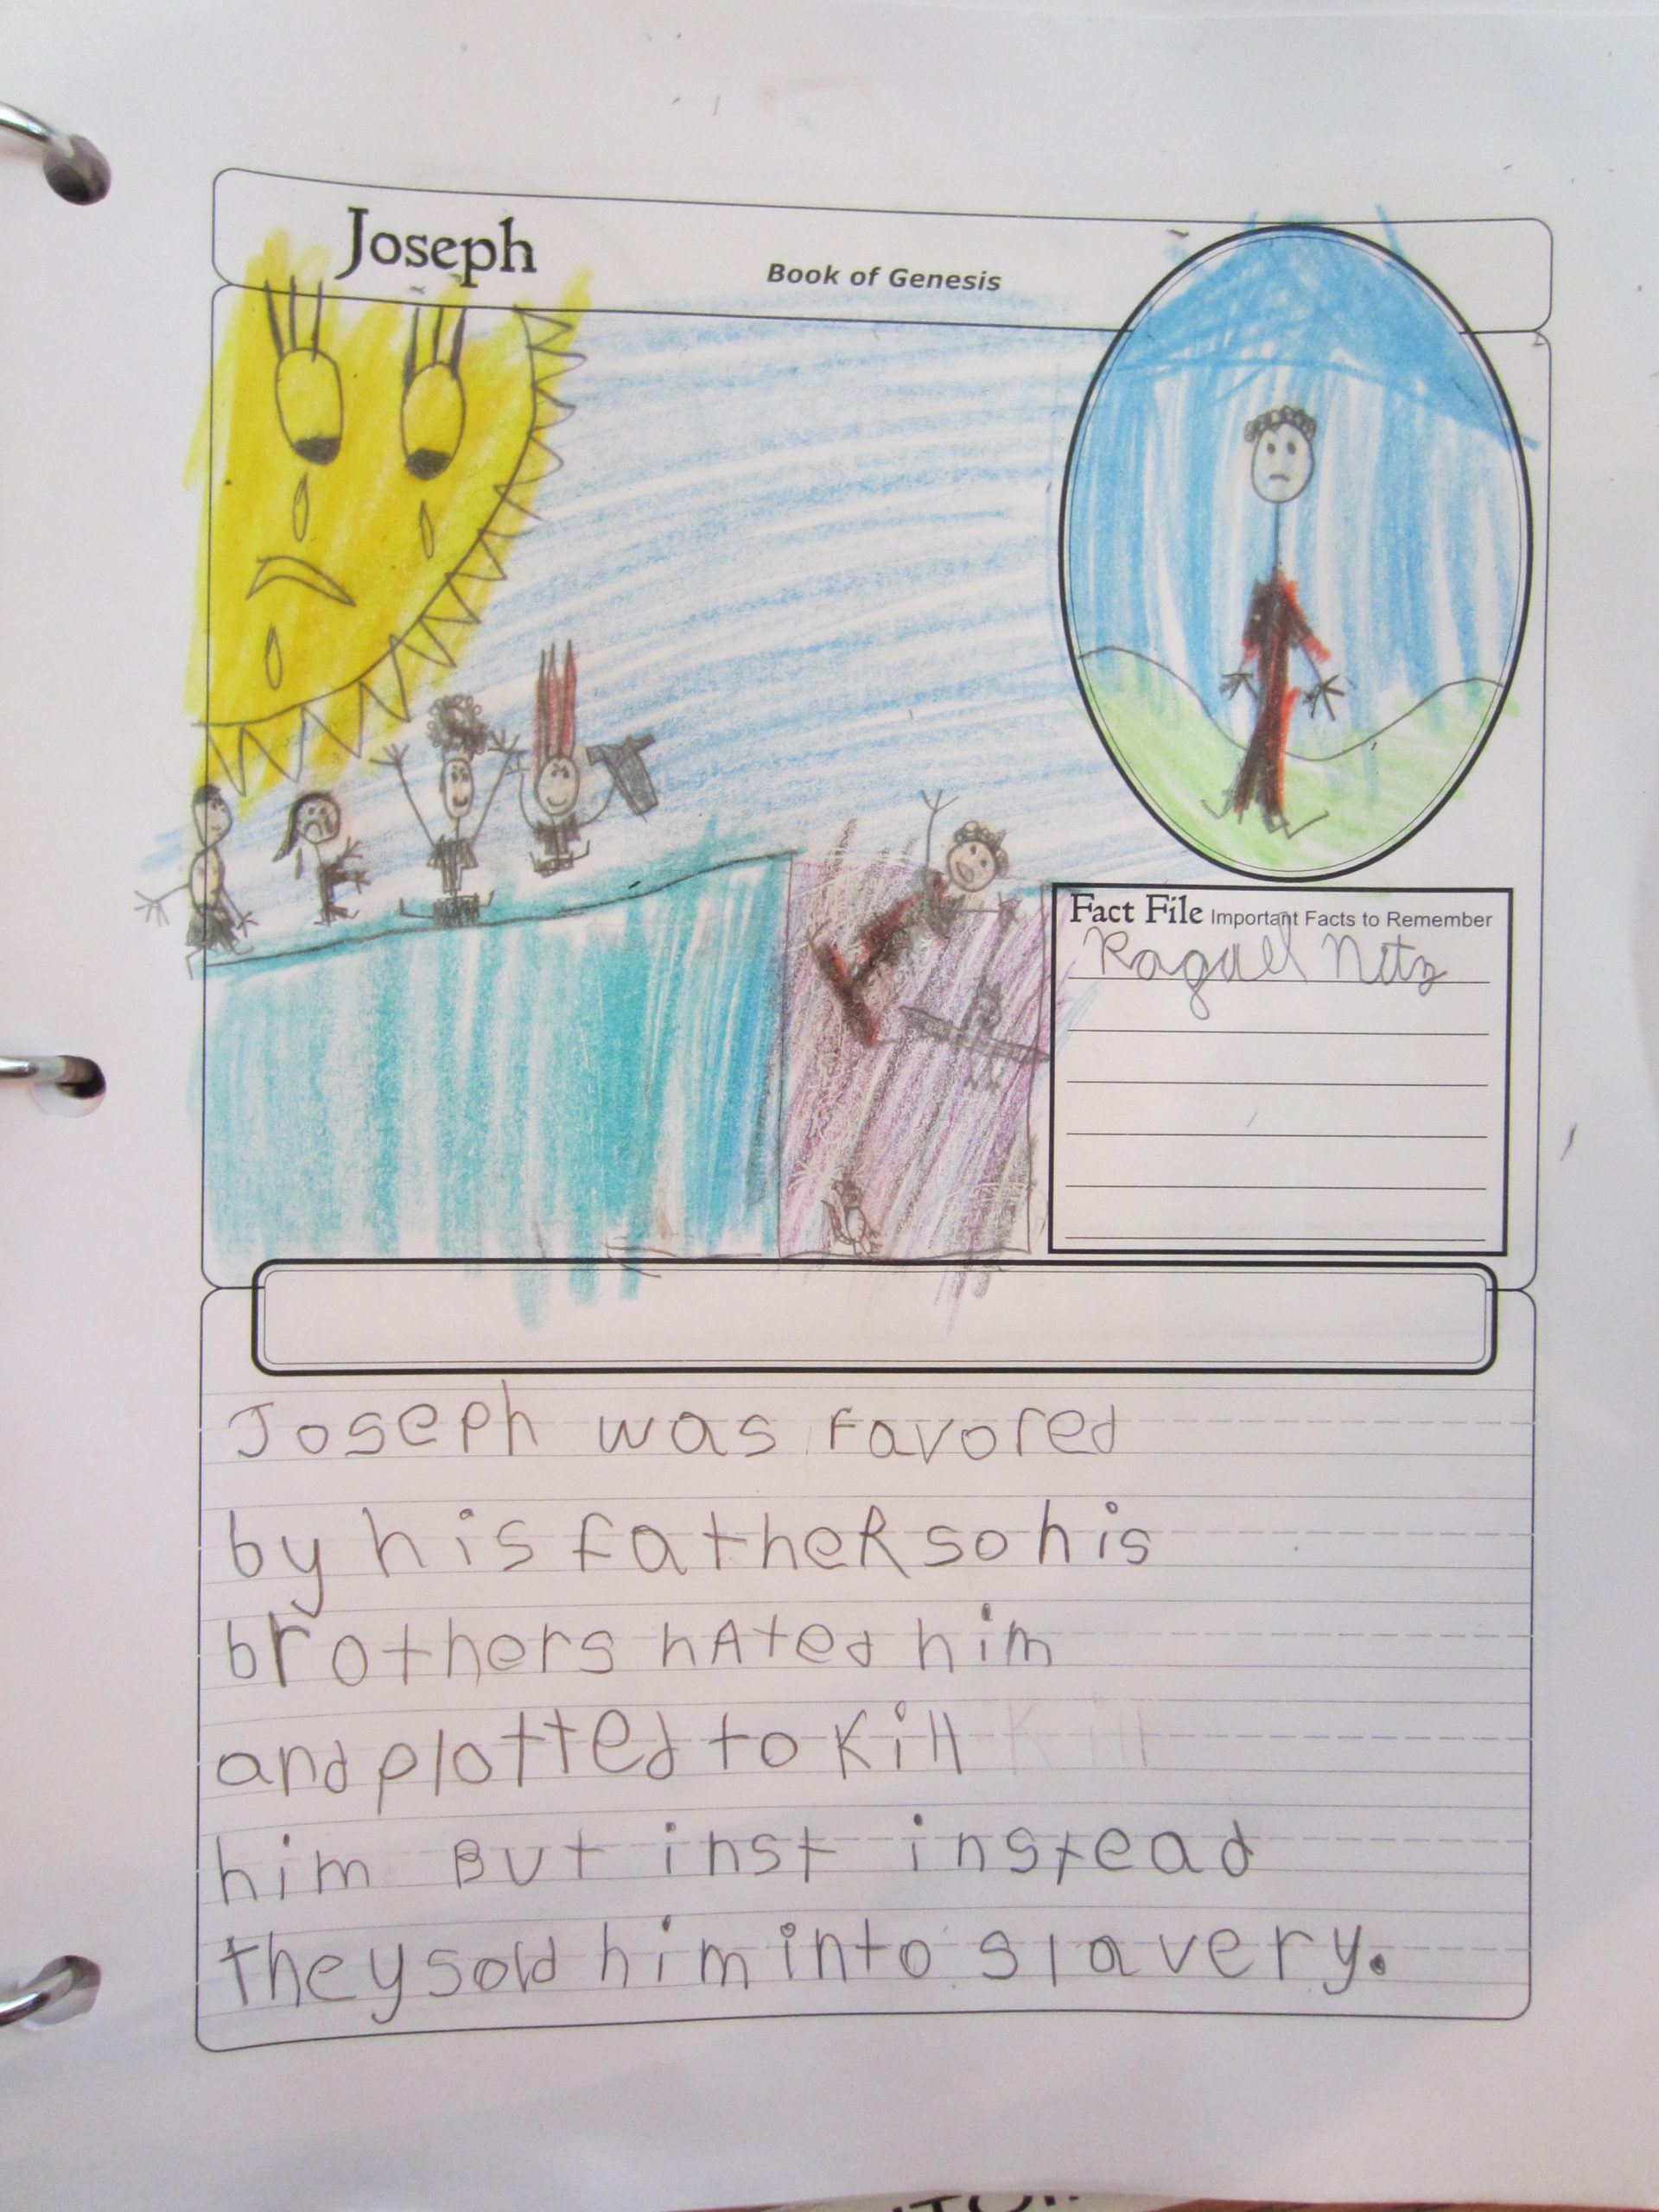 Joseph
Book of Genesis
Fact File Important Facts to Remember
Raquel Nitz
Joseph was Favored
by his fatheR so his
brothers hAted him
and plotted to Kill Kill
him But inst instead
they sold him into slavery.